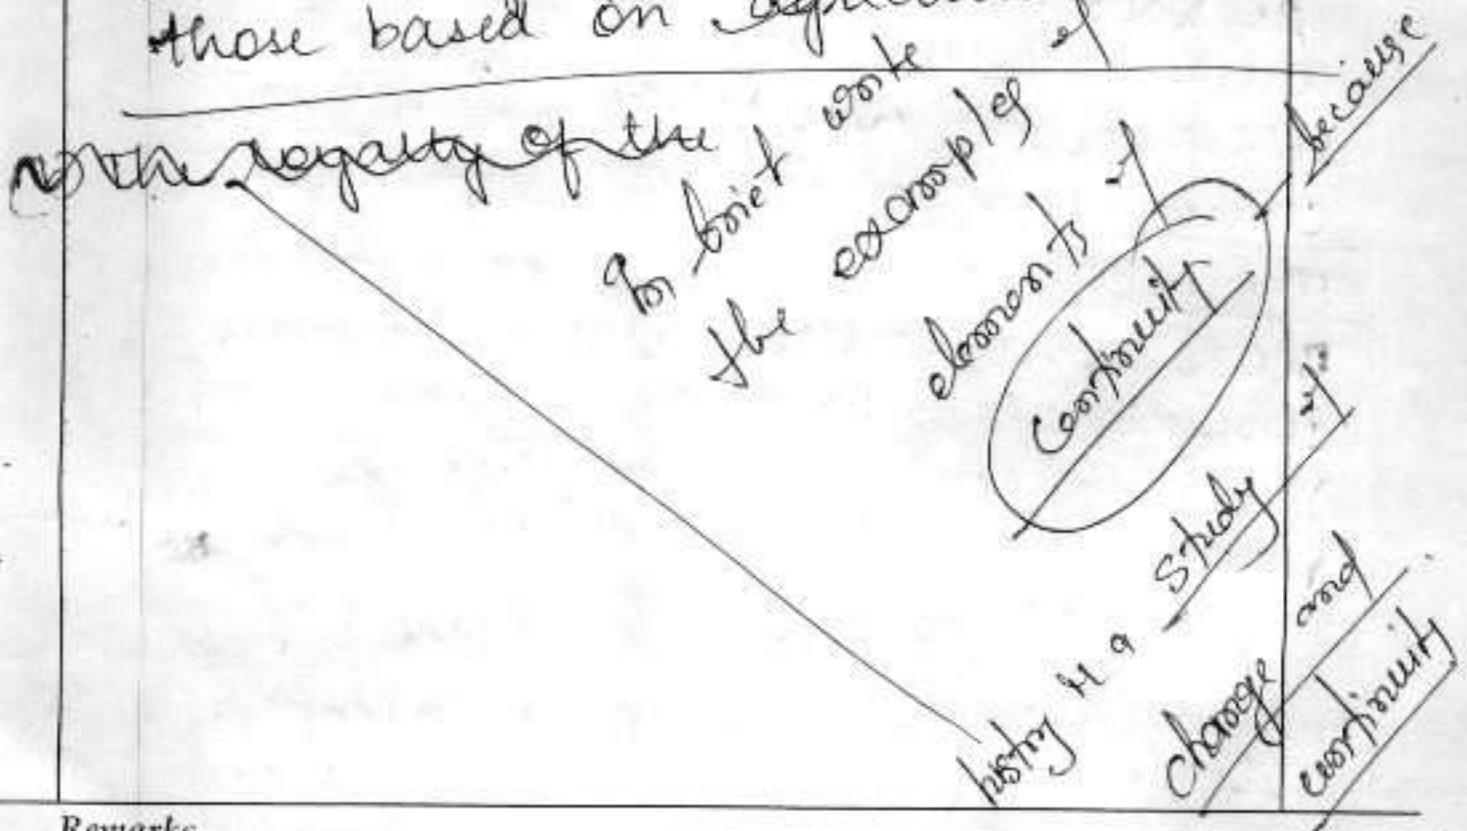 those based on
the royalty of the
In brief write
the examples of
elements of
continuity because
history is a study of
change and
continuity
Remarks